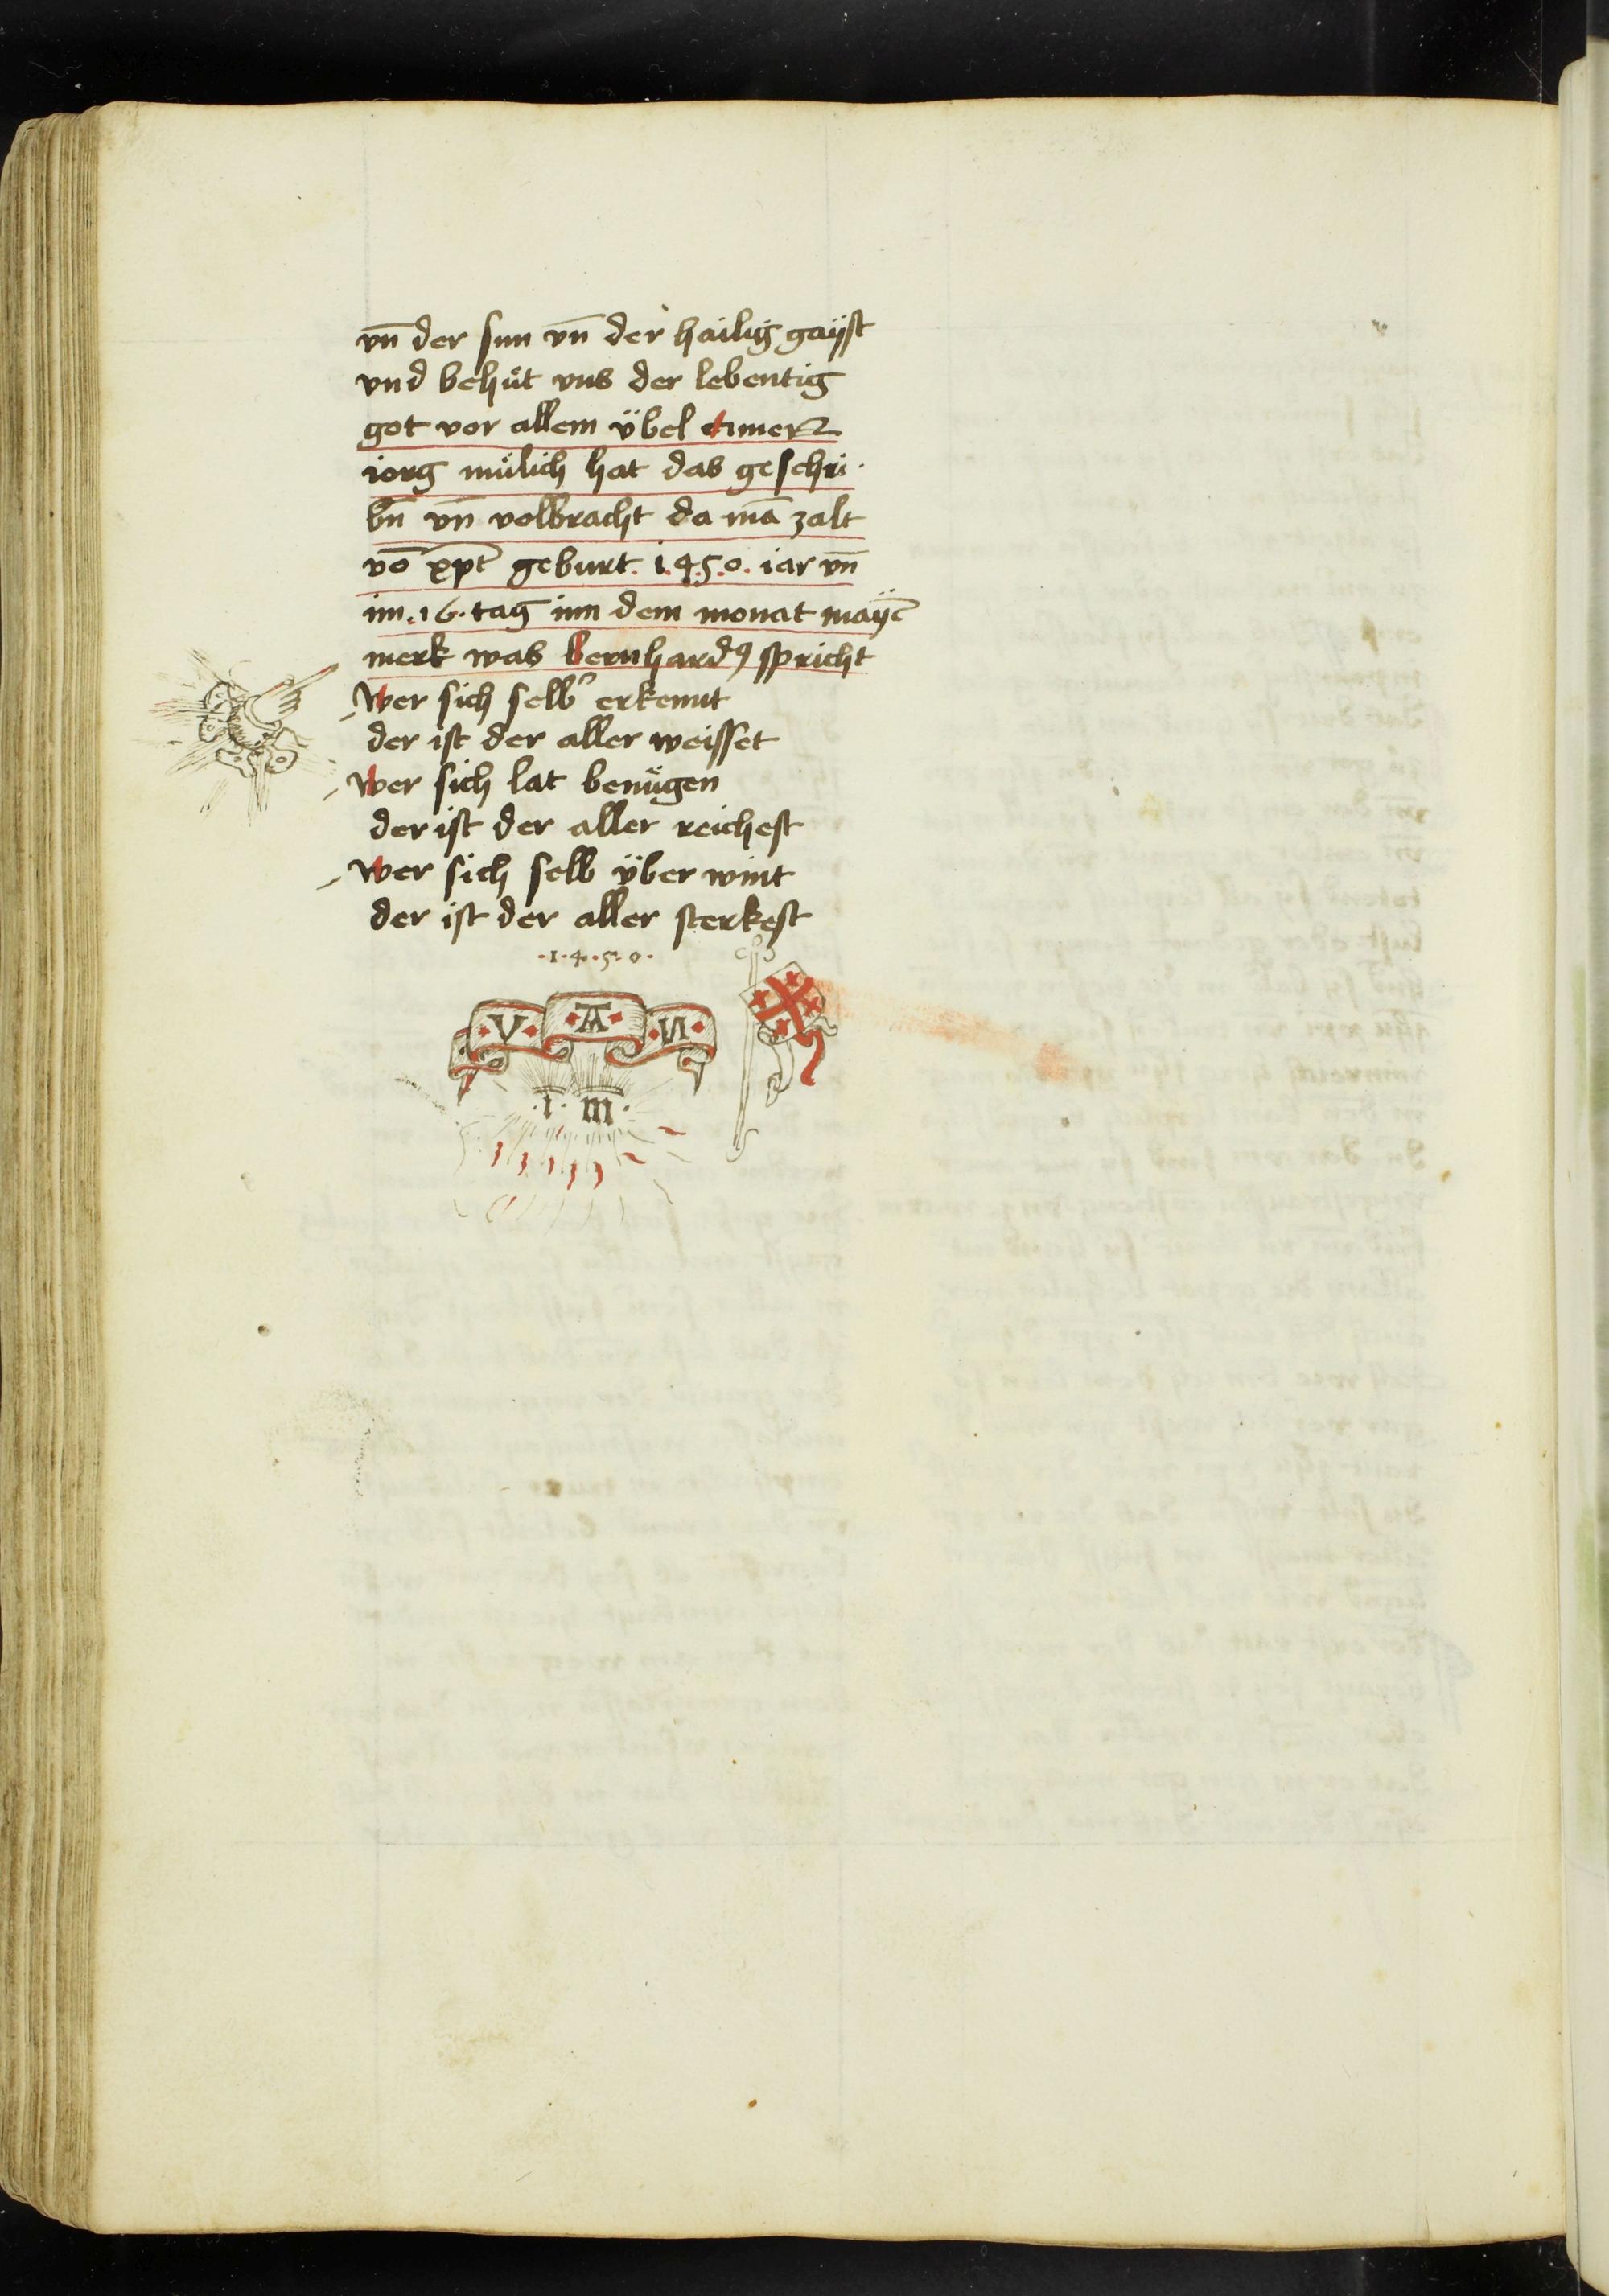 vn̄ der sun vn̄ der hailig gayst
vnd behuͤt vns der lebentig
got vor allem übel
iorg muͤlich hat das geschri·
bn̄ vn̄ volbracht da mā zalt
vō xp̄i geburt ·1·4·5·0· iar vn̄
im ·16· tag inn dem monat
merk was bernhardꝰ spricht
Wer sich selb erkennt
der ist der aller weisset
Wer sich lat benuͤgen
der ist der aller reichest
Wer sich selb über wint
der ist der aller sterkest
·1·4·5·0·
·V· ·A· ·N·
·I· M·